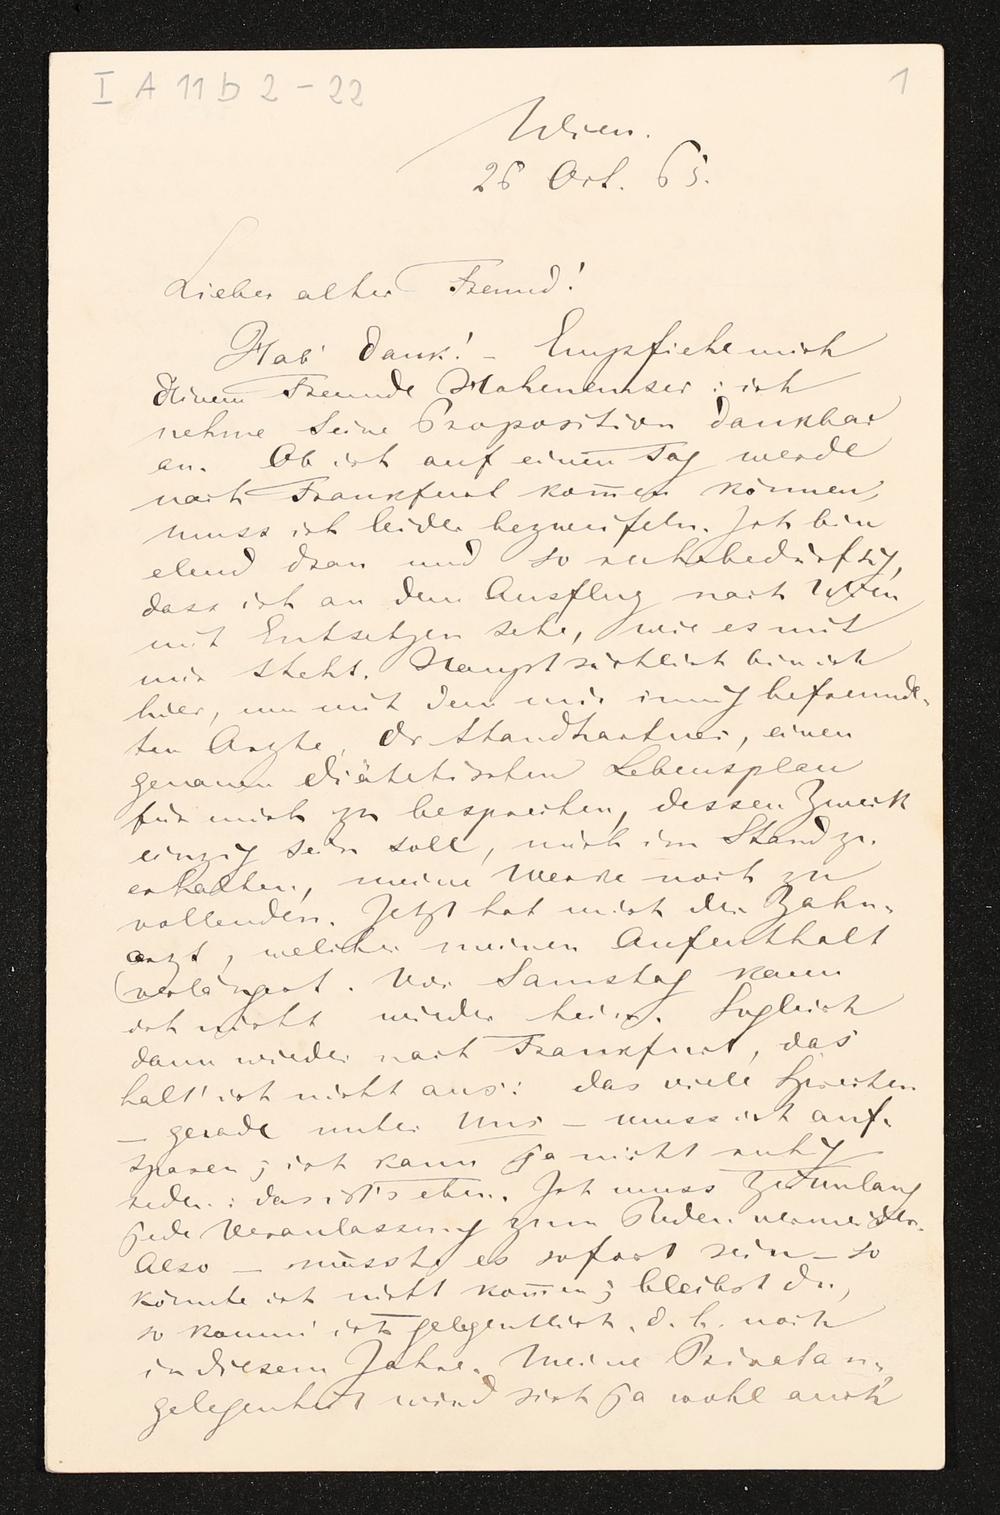 I A 11 b 2 - 22
1
Wien.
26 Oct. 65.
Lieber alter Freund!
Hab' Dank! – Empfiehl mich
Deinem Freunde Hohenemser: ich
nehme seine Proposition dankbar
an. Ob ich auf einen Tag werde
nach Frankfurt kom̅en können,
muss ich leider bezweifeln. Ich bin
elend dran und so ruhebedürftig,
dass ich an dem Ausflug nach Wien
mit Entsetzen sehe, wie es mit
mir steht. Hauptsächlich bin ich
hier, um mit dem mir innig befreunde-
ten Arzte, Dr Standhartner, einen
genauen diätetischen Lebensplan
für mich zu besprechen, dessen Zweck
einzig sein soll, mich im Stand zu
erhalten, meine Werke noch zu
vollenden. Jetzt hat mich der Zahn-
arzt, welcher meinen Aufenthalt
verlängert. Vor Samstag kann
ich nicht wieder heim. Sogleich
dann wieder nach Frankfurt, das
halt' ich nicht aus: das viele Sprechen
– gerade unter uns – muss ich auf-
sparen; ich kann ja nicht ruhig
reden: das ist's eben. Ich muss Zeitlang
jede Veranlassung zum Reden vermeiden.
Also – müsste es sofort sein – so
könnte ich nicht kom̅en; bleibst du,
so komm' ich gelegentlich, d. h. noch
in diesem Jahre. Meine Privatan-
gelegenheit wird sich ja wohl auch